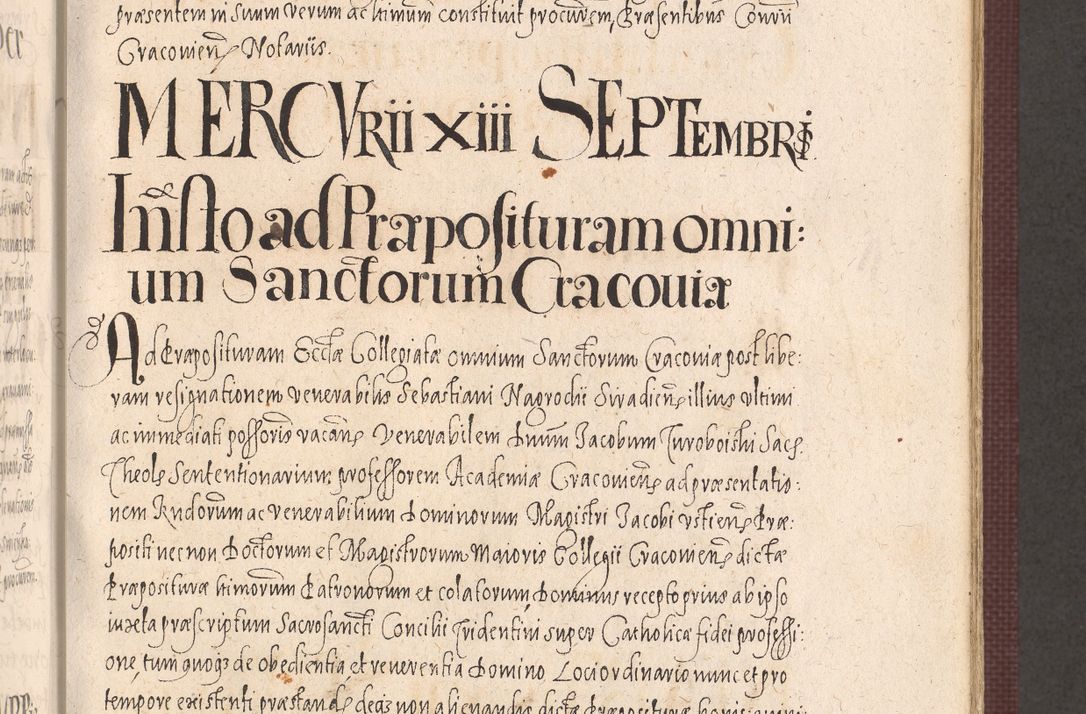 præsentem in suum verum ac ltimum constituit procurem, Præsentibus Convn
Cracovien Notariis.
MERCVRII XIII SEPTEMBRIS
Insto ad Præposituram omni:
um Sanctorum Cracouiæ
Ad Præposituram Ecctæ Collegiatæ omnium Sanctorum Cracoviæ post libe:
ram resignationem venerabilis Sebastiani Nagrodii Siradien illius vltimi
ac immediati possoris vacan, Venerabilem Dnum Jacobum Turoboiski Sac
Theole Sententionarium professorem Academiæ Cracovien ad præsentatio:
nem Rndorum ac venerabilium Dominorum Magistri Jacobi vstien Præ:
positi necnon Doctorum et Magistrorum Maioris Collegii Cracovien dictæ
Præposituræ ltimorum Patronorum et colatorum, Dominus recepto prius ab ipso
iuxta præscriptum Sacrosancti Concilii Tridentini super Catholicæ fidei professi:
one, tum quoq; de obedientia et reverentia Domino Loci ordinario nunc et pro
tempore existenti præstand, deq; non alienandis dictæ Præposituræ bonis